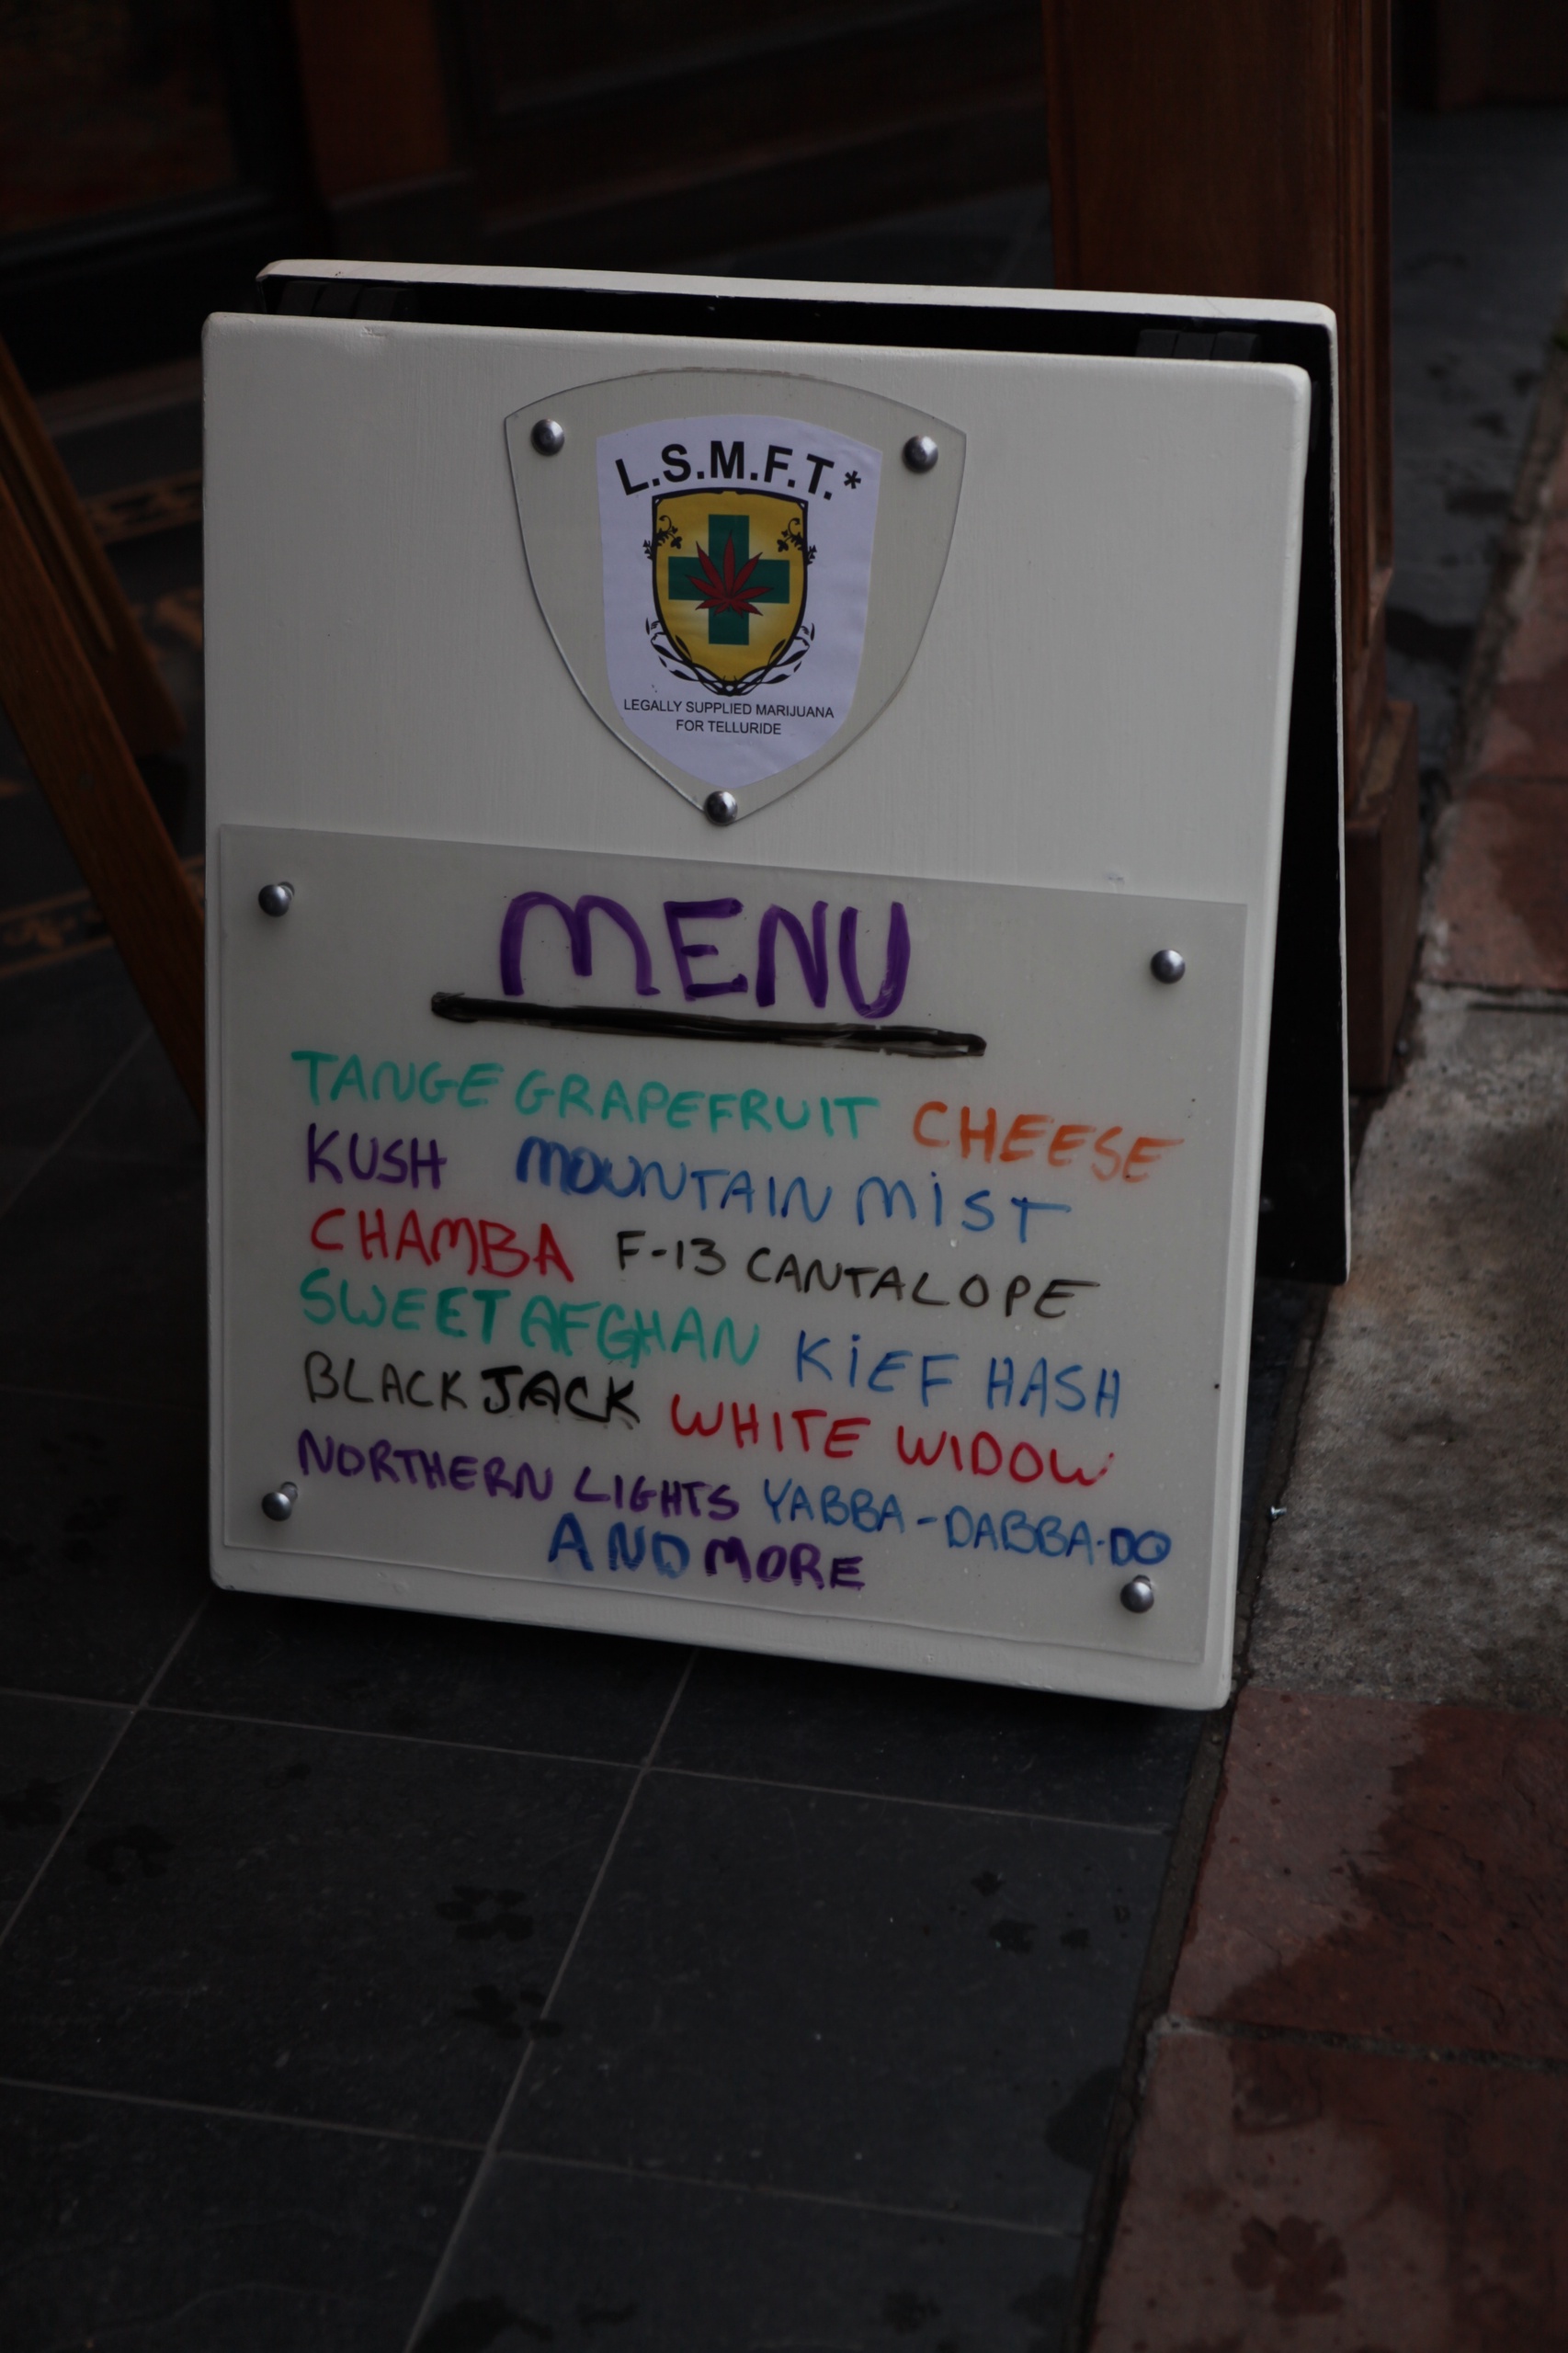 L.S.M.F.T.*
LEGALLY SUPPLIED MARIJUANA
FOR TELLURIDE
MENU
TANGE GRAPEFRUIT CHEESE
KUSH MOUNTAIN MIST
CHAMBA F-13 CANTALOPE
SWEET AFGHAN KIEF HASH
BLACKJACK WHITE WIDOW
NORTHERN LIGHTS YABBA-DABBA-DO
AND MORE